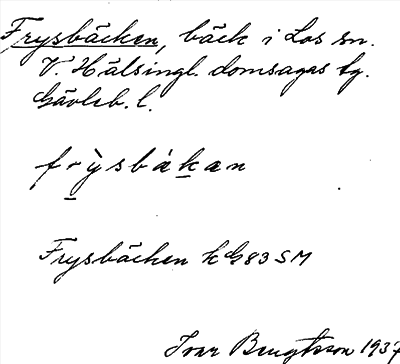 Frysbäcken, bäck i Los sn.
V. Hälsingl. domsagas tg.
Gävleb. l.
fry̆̀sbàkan
Frysbäcken k G83 SM
Ivar Bengtsson 1937